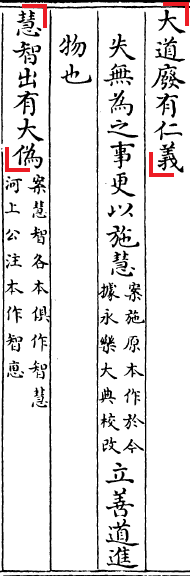 大道廢有仁義
失無為之事更以施慧案施原本作於今據永樂大典校改立善道進
物也
慧智出有大偽案慧智各本俱作智慧河上公注本作智惠